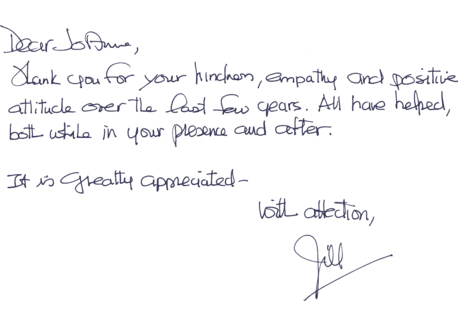 Dear JoAnne,
Thank you for your kindness, empathy and positive
attitude over the last few years. All have helped,
both while in your presence and after.
It is Greatly appreciated-
With affection,
Jill